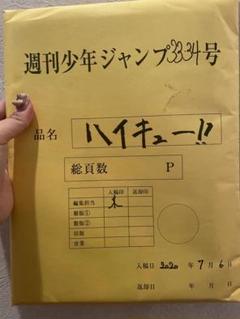 週刊少年ジャンプ33.34号
品名 ハイキュー!!
総頁数 P
入稿印 返却印
編集担当 木
製版①
製版②
入稿日 2020 年 7 月 6 日
返却日 年 月 日